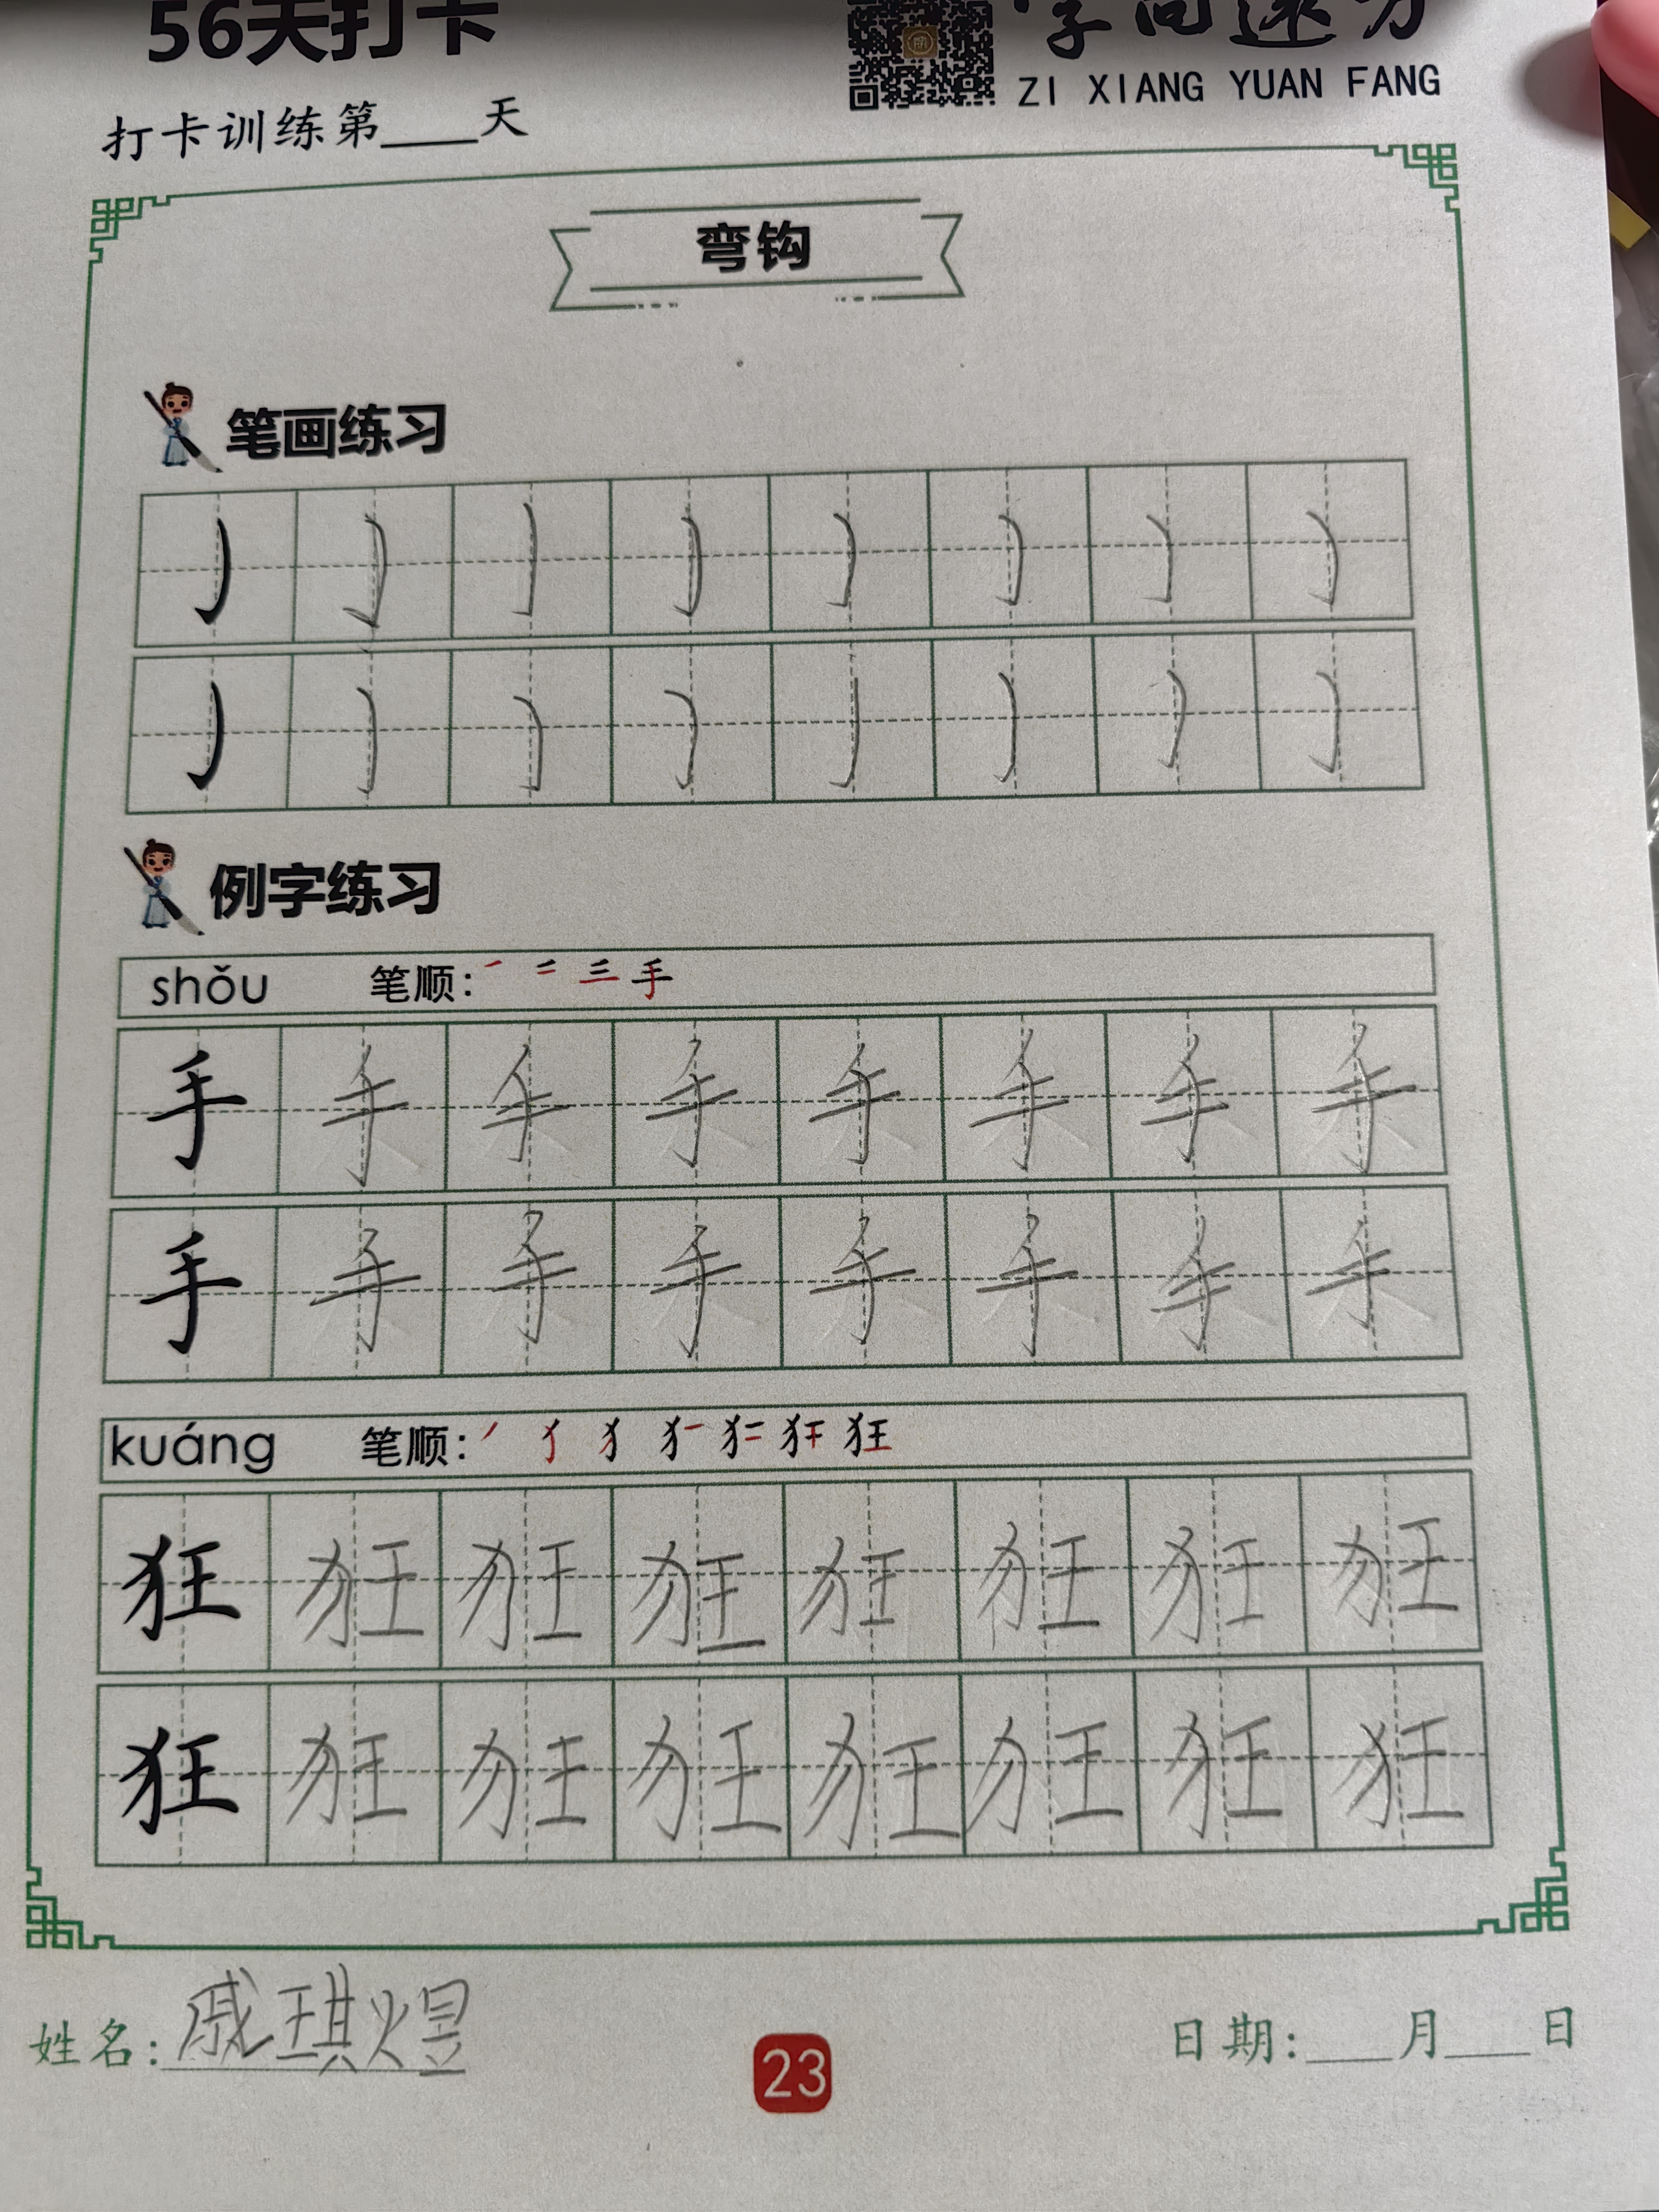 56天打卡
ZI XIANG YUAN FANG
打卡训练第____天
弯钩
笔画练习
例字练习
shǒu 笔顺: 一 二 三 手
手 手 手 手 手 手 手 手
手 手 手 手 手 手 手 手
kuáng 笔顺: 狂
狂 狂 狂 狂 狂 狂 狂 狂
狂 狂 狂 狂 狂 狂 狂 狂
姓名: 戚琪煜
23
日期: ___月___日